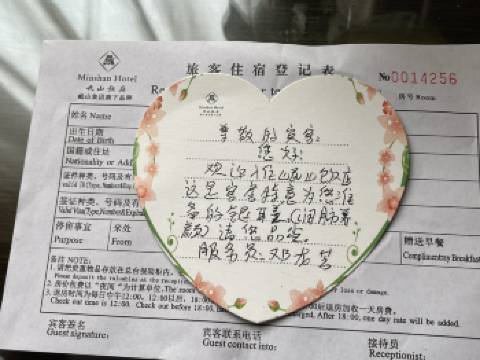 Minshan Hotel
岷山饭店
岷山集团旗下品牌
旅客住宿登记表
No 0014256
房号 Room
姓名 Name
出生日期
Date of Birth
国籍或住址
Nationality or Add
证件种类、号码及有
签证种类、号码及有
停留事宜
Purpose
来处
From
赠送早餐
Complimentary Breakfast
备注 NOTE:
1.请把贵重物品存放在总台保险箱内。
Please deposit the valuables at the reception
loss or damage.
2.房价收费以“夜间”为计算单位,The room
3.退房时间为每日中午12:00,12:00以后,18:00
后续房加收一天房费。
Check out time is 12:00. Check out before 18:00
After 18:00, one day rate will be added.
宾客签名
Guest signature:
宾客联系电话
Guest contact info:
接待员
Receptionist:
Minshan Hotel
尊敬的宾客:
您好!
欢迎入住岷山饭店
这是客房特意为您准
备的银耳羹(润肺养
颜)请您品尝。
服务员:邓